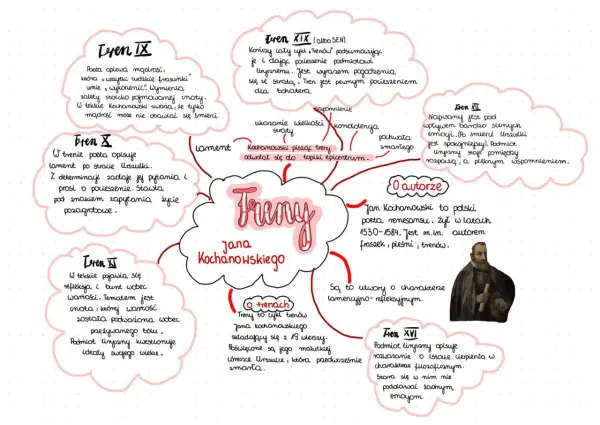 Tren IX
Poeta opiewa mądrość,
która "wszytki ludzkie frasunki"
umie "wykorzenić". Wymienia
zalety stoicko pojmowanej cnoty.
W tekście Kochanowski uważa, że tylko
mądrość może nie obawiać się śmierci.
Tren XIX (albo SEN)
Kończy cały cykl "Trenów" podsumowując
je i dając pocieszenie podmiotowi
lirycznemu. Jest wyrazem pogodzenia
się ze stratą. Tren jest pewnym pocieszeniem
dla bohatera.
Tren XII
Napisany jest pod
wpływem bardzo silnych
emocji. (Po śmierci Urszulki
jest spokojniejszy). Podmiot
liryczny stoi pomiędzy
rozpaczą, a pięknym wspomnieniem.
Tren X
W trenie poeta opisuje
lament po stracie Urszulki.
Z determinacją zadaje jej pytania i
prosi o pocieszenie. Stawia
pod znakiem zapytania życie
pozagrobowe.
lament
ukazanie wielkości
straty
kondolencja
napomnienie
pochwała
zmarłego
Kochanowski pisząc treny
odwołał się do topiki epicentrum.
Treny
Jana
Kochanowskiego
O autorze
Jan Kochanowski to polski
poeta renesansu. Żył w latach
1530-1584. Jest m.in. autorem
fraszek, pieśni i trenów.
Tren XI
W tekście pojawia się
refleksja i bunt wobec
wartości. Tematem jest
cnota, której wartość
została podważona wobec
przeżywanego bólu.
Podmiot liryczny kwestionuje
ideały swojego wieku.
o trenach
Treny to cykl trenów
Jana Kochanowskiego
składający się z 19 wierszy.
Poświęcone są jego malutkiej
córeczce Urszulce, która przedwcześnie
zmarła.
Są to utwory o charakterze
lamencyjno-refleksyjnym.
Tren XVI
Podmiot liryczny opisuje
rozważanie o istocie cierpienia w
charakterze filozoficznym.
Stara się w nim nie
poddawać żadnym
emocjom.